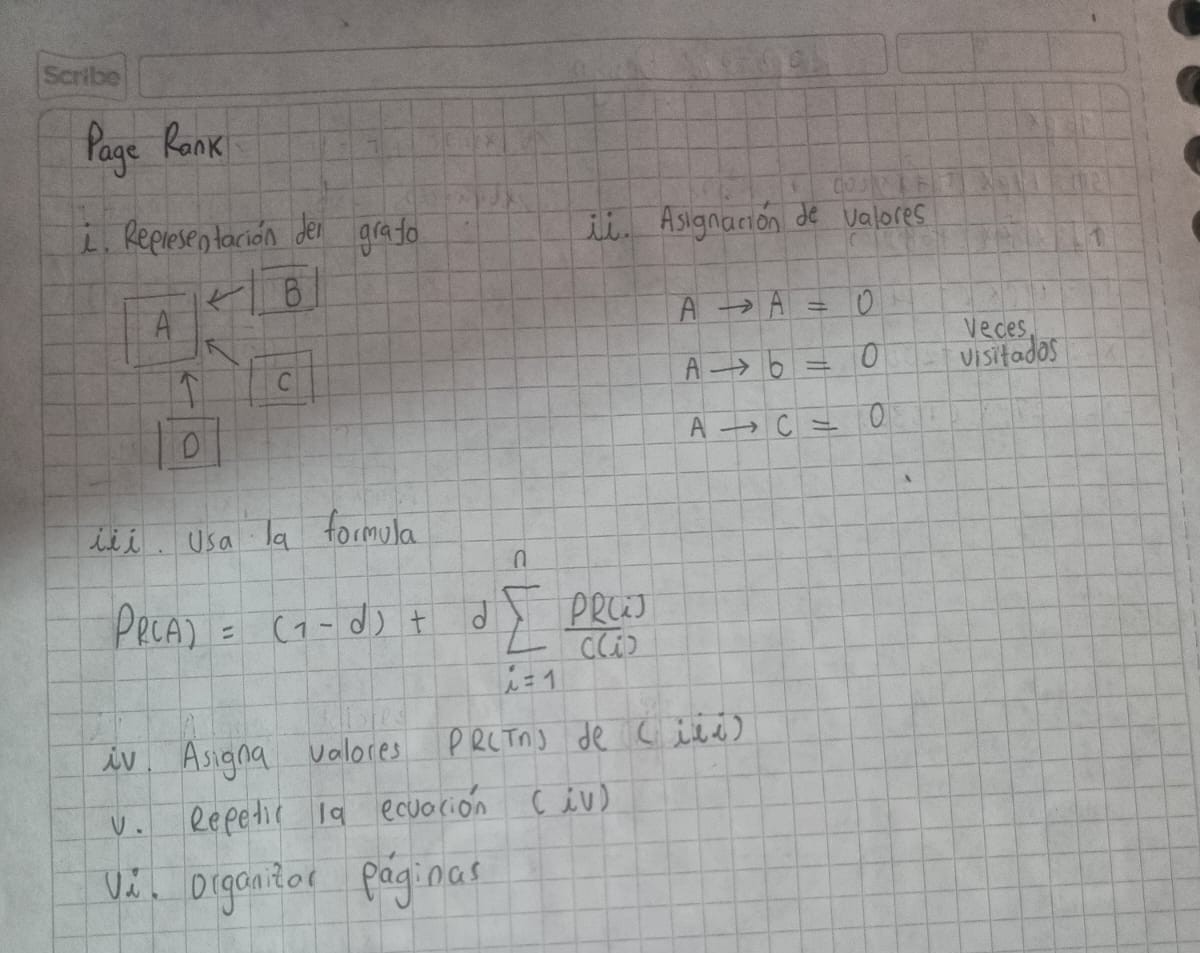 Scribe
Page Rank
i. Representación del grafo
A ← B
C
D
ii. Asignación de valores
A → A = 0
A → b = 0
A → C = 0
veces
visitados
iii. Usa la formula
PR(A) = (1 - d) + d ∑ PR(i) / C(i)
n
i = 1
iv. Asigna valores PR(Tn) de (iii)
v. Repetir la ecuación (iv)
vi. Organizar páginas